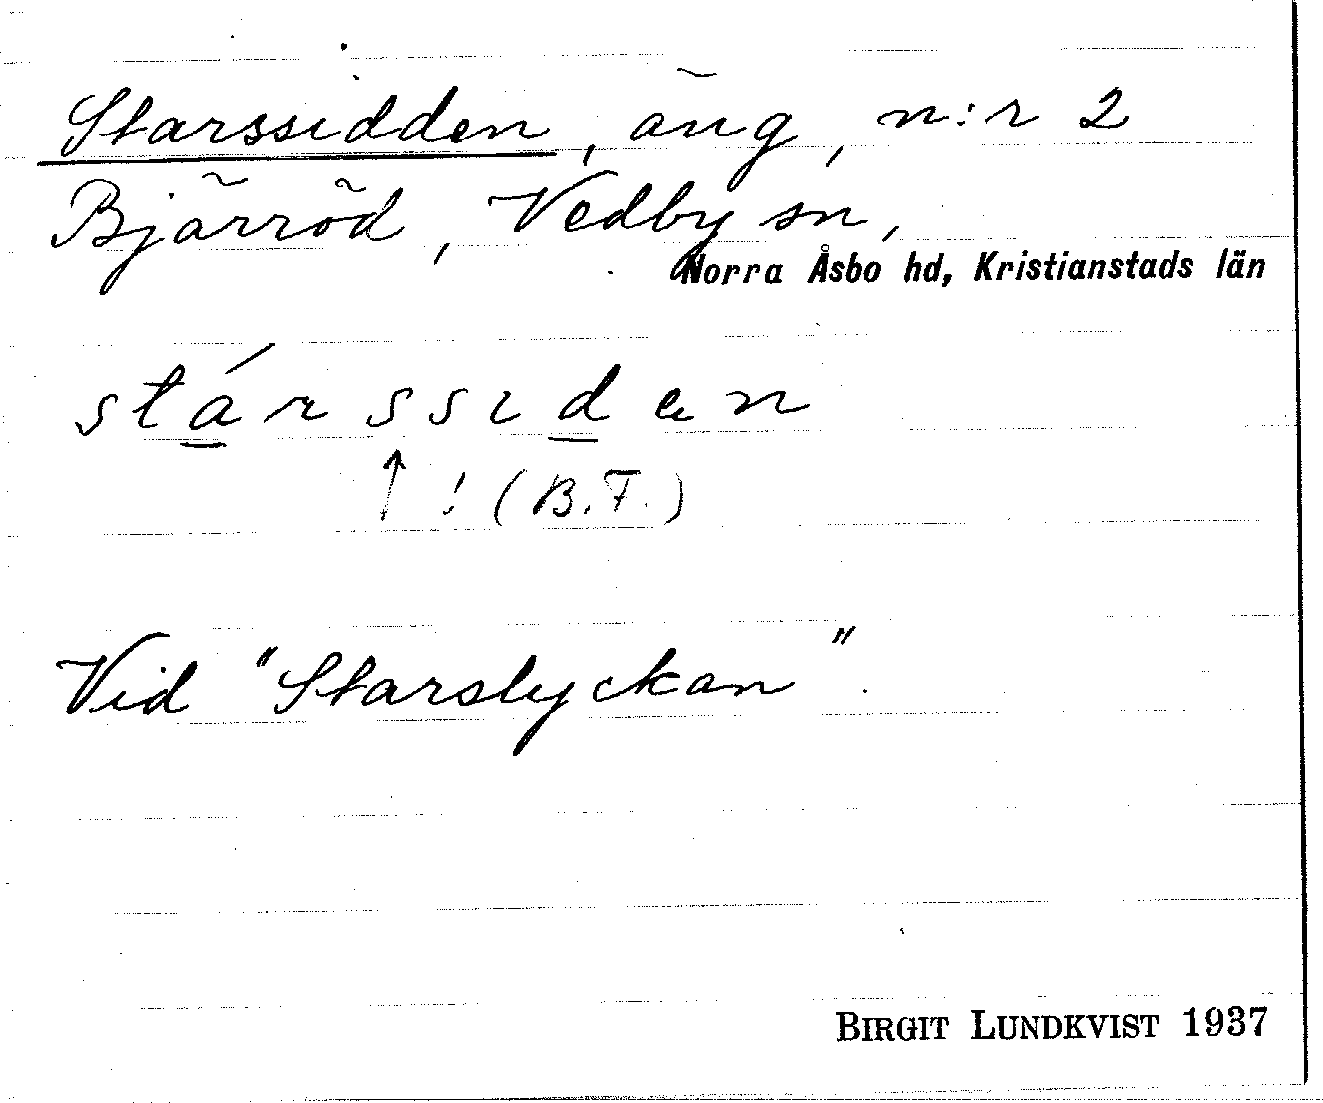 Starssidden, äng, n:r 2
Bjärröd, Vedby sn,
Norra Åsbo hd, Kristianstads län
stárssıden
↑ ! (B.F.)
Vid "Starslyckan".
BIRGIT LUNDKVIST 1937